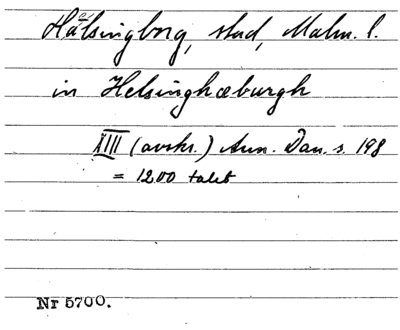 Hälsingborg, stad, Malm. l.
in Helsinghæburgh
XIII (avskr.) Ann. Dan. s. 198
= 1200 talet
Nr 5700.